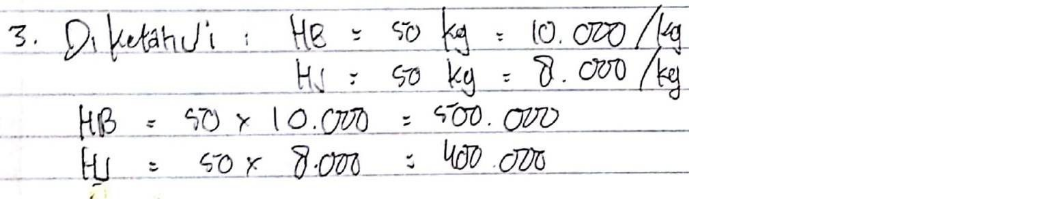 3. Diketahui : HB = 50 kg = 10.000 /kg
HJ = 50 kg = 8.000 /kg
HB = 50 x 10.000 = 500.000
HJ = 50 x 8.000 = 400.000